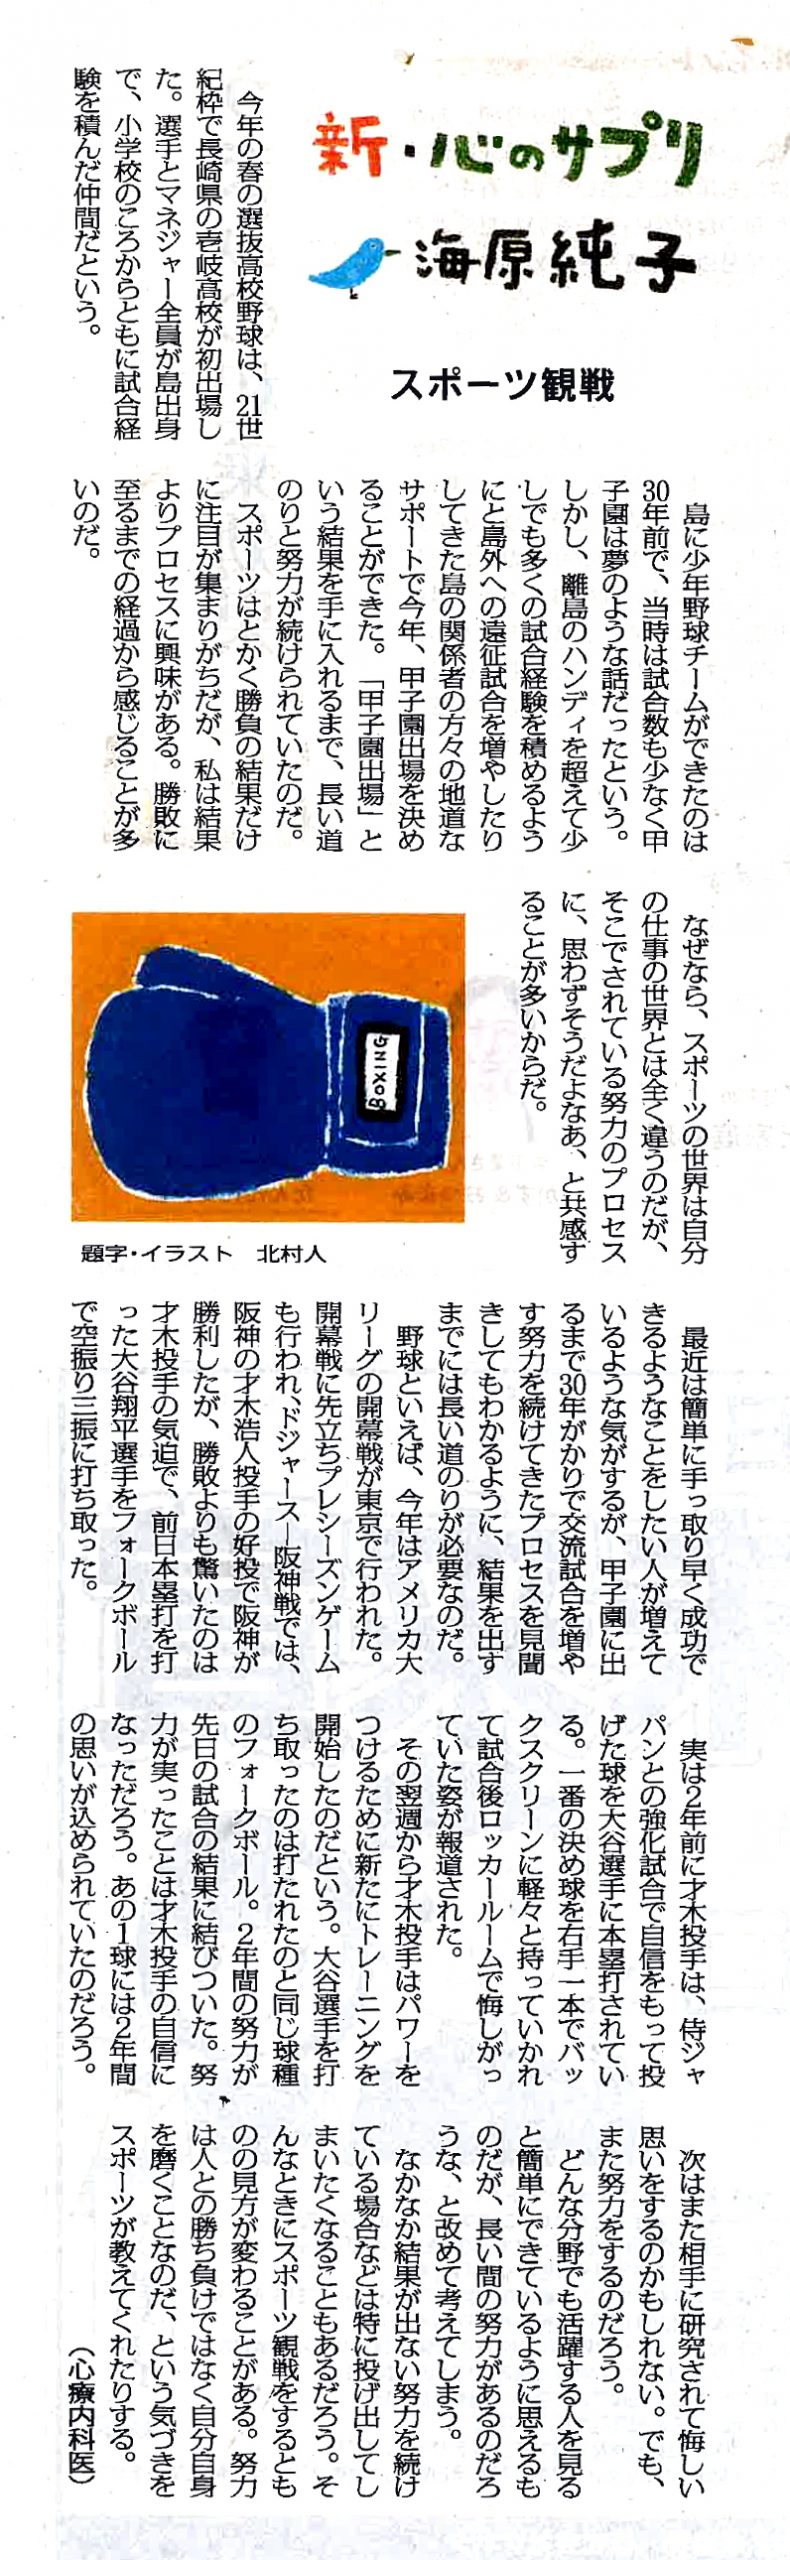 新・心のサプリ
海原純子
スポーツ観戦
　今年の春の選抜高校野球は、21世
紀枠で長崎県の壱岐高校が初出場し
た。選手とマネジャー全員が島出身
で、小学校のころからともに試合経
験を積んだ仲間だという。
　島に少年野球チームができたのは
30年前で、当時は試合数も少なく甲
子園は夢のような話だったという。
しかし、離島のハンディを超えて少
しでも多くの試合経験を積めるよう
にと島外への遠征試合を増やしたり
してきた島の関係者の方々の地道な
サポートで今年、甲子園出場を決め
ることができた。「甲子園出場」と
いう結果を手に入れるまで、長い道
のりと努力が続けられていたのだ。
　スポーツはとかく勝負の結果だけ
に注目が集まりがちだが、私は結果
よりプロセスに興味がある。勝敗に
至るまでの経過から感じることが多
いのだ。
　なぜなら、スポーツの世界は自分
の仕事の世界とは全く違うのだが、
そこでされている努力のプロセス
に、思わずそうだよなあ、と共感す
ることが多いからだ。
BOXING
題字・イラスト　北村人
　最近は簡単に手っ取り早く成功で
きるようなことをしたい人が増えて
いるような気がするが、甲子園に出
るまで30年がかりで交流試合を増や
す努力を続けてきたプロセスを見聞
きしてもわかるように、結果を出す
までには長い道のりが必要なのだ。
　野球といえば、今年はアメリカ大
リーグの開幕戦が東京で行われた。
開幕戦に先立ちプレシーズンゲーム
も行われ、ドジャース―阪神戦では、
阪神の才木浩人投手の好投で阪神が
勝利したが、勝敗よりも驚いたのは
才木投手の気迫で、前日本塁打を打
った大谷翔平選手をフォークボール
で空振り三振に打ち取った。
　実は2年前に才木投手は、侍ジャ
パンとの強化試合で自信をもって投
げた球を大谷選手に本塁打されてい
る。一番の決め球を右手一本でバッ
クスクリーンに軽々と持っていかれ
て試合後ロッカールームで悔しがっ
ていた姿が報道された。
　その翌週から才木投手はパワーを
つけるために新たにトレーニングを
開始したのだという。大谷選手を打
ち取ったのは打たれたのと同じ球種
のフォークボール。2年間の努力が
先日の試合の結果に結びついた。努
力が実ったことは才木投手の自信に
なっただろう。あの1球には2年間
の思いが込められていたのだろう。
　次はまた相手に研究されて悔しい
思いをするのかもしれない。でも、
また努力をするのだろう。
　どんな分野でも活躍する人を見る
と簡単にできているように思えるも
のだが、長い間の努力があるのだろ
うな、と改めて考えてしまう。
　なかなか結果が出ない努力を続け
ている場合などは特に投げ出してし
まいたくなることもあるだろう。そ
んなときにスポーツ観戦をするとも
のの見方が変わることがある。努力
は人との勝ち負けではなく自分自身
を磨くことなのだ、という気づきを
スポーツが教えてくれたりする。
（心療内科医）